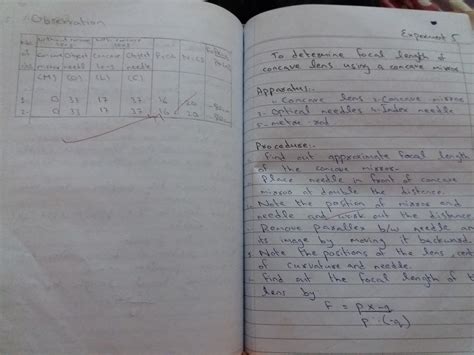 Observation
Concave Object Concave Object
lens needle
(M) (O) (L) (C)
1. 0 33 17 37 16 20 -80
2. 0 33 17 37 16 20 -80
Experiment 5
To determine focal length of
concave lens using a concave mirror
Apparatus:-
1- Concave lens 2- Concave mirror
3- Optical needles 4- Index needle
5- meter rod
Procedure:-
Find out approximate focal length
of the concave mirror.
Place needle in front of concave
mirror at double the distance.
Note the position of mirror and
needle and work out the distance
Remove parallex b/w needle an
its image by moving it backward.
Note the positions of the lens, cent
of curvature and needle.
Find out the focal length of t
lens by
F = p x -q
p + (-q)